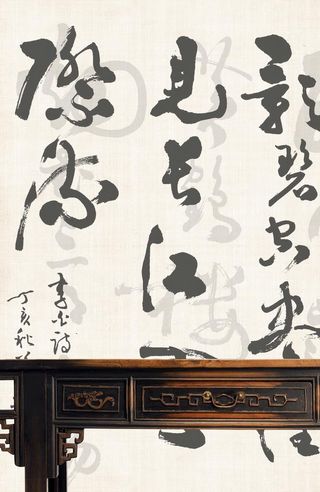 影碧空尽
見長江
際流
李白詩
丁亥秋